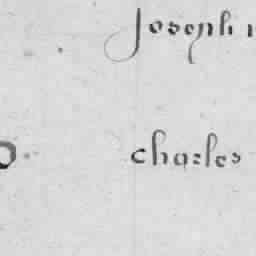 Joseph
charles